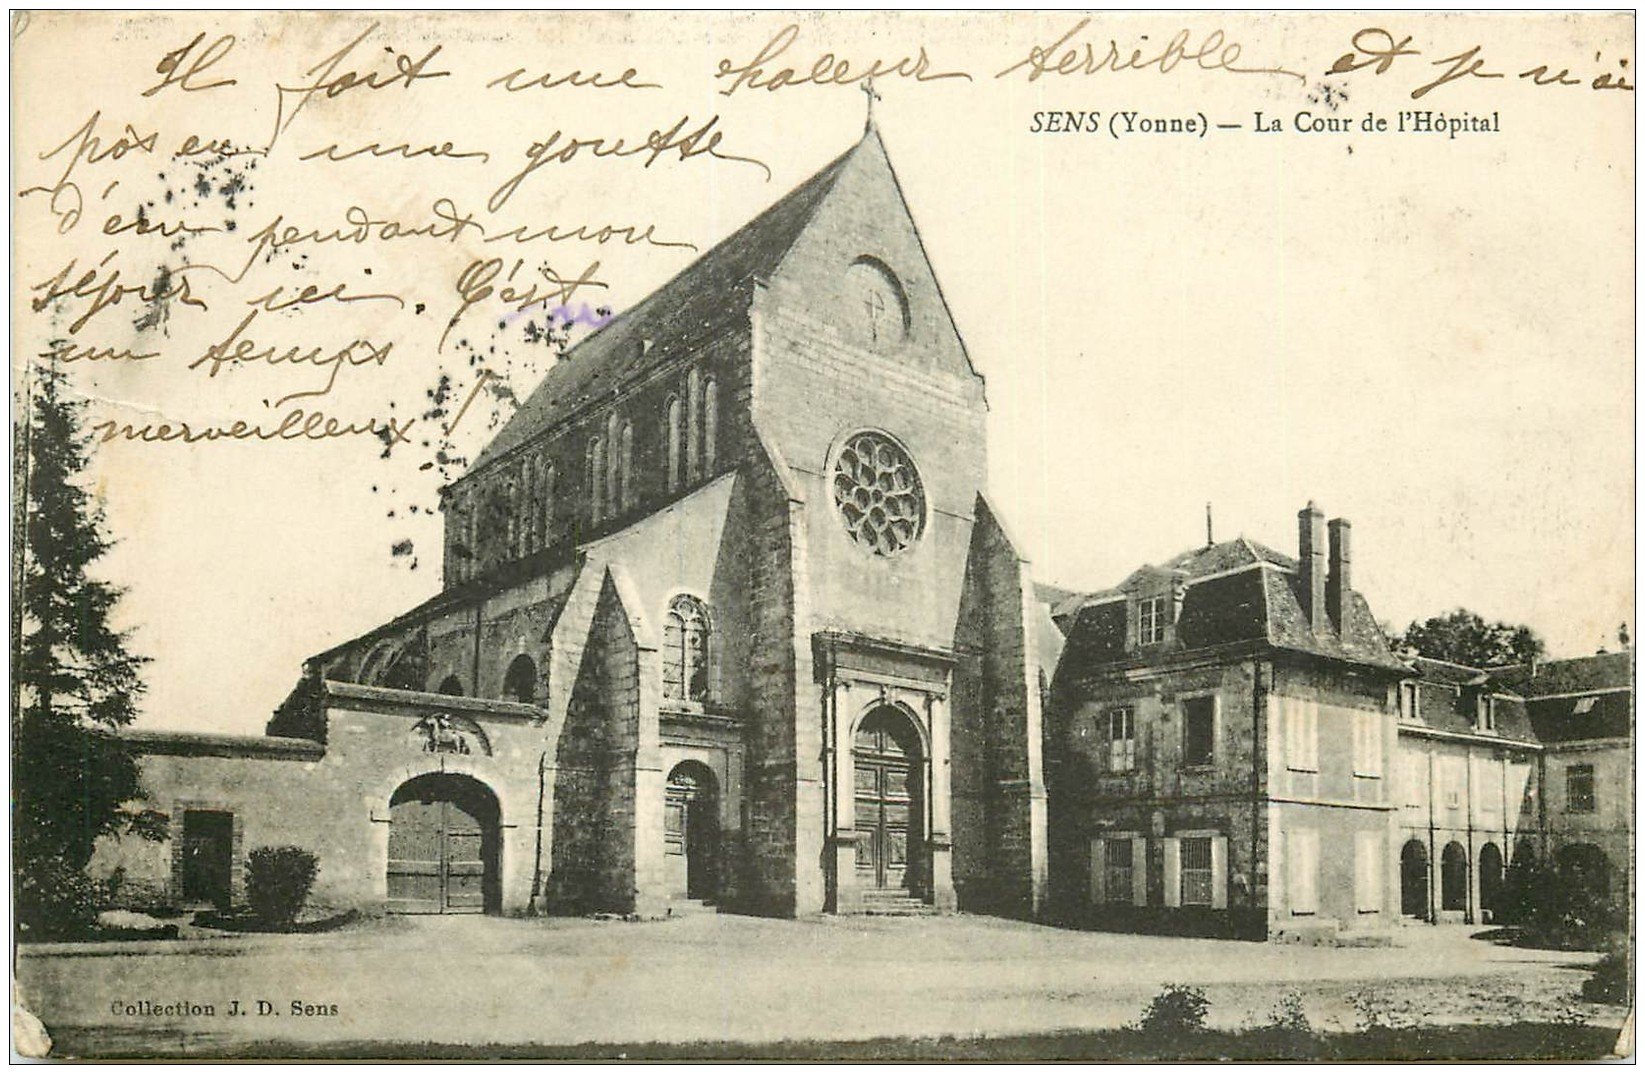 Il fait une chaleur terrible et je n'ai
pas eu une goutte
d'eau pendant mon
séjour ici. C'est
un temps
merveilleux !
SENS (Yonne) — La Cour de l'Hôpital
Collection J. D. Sens